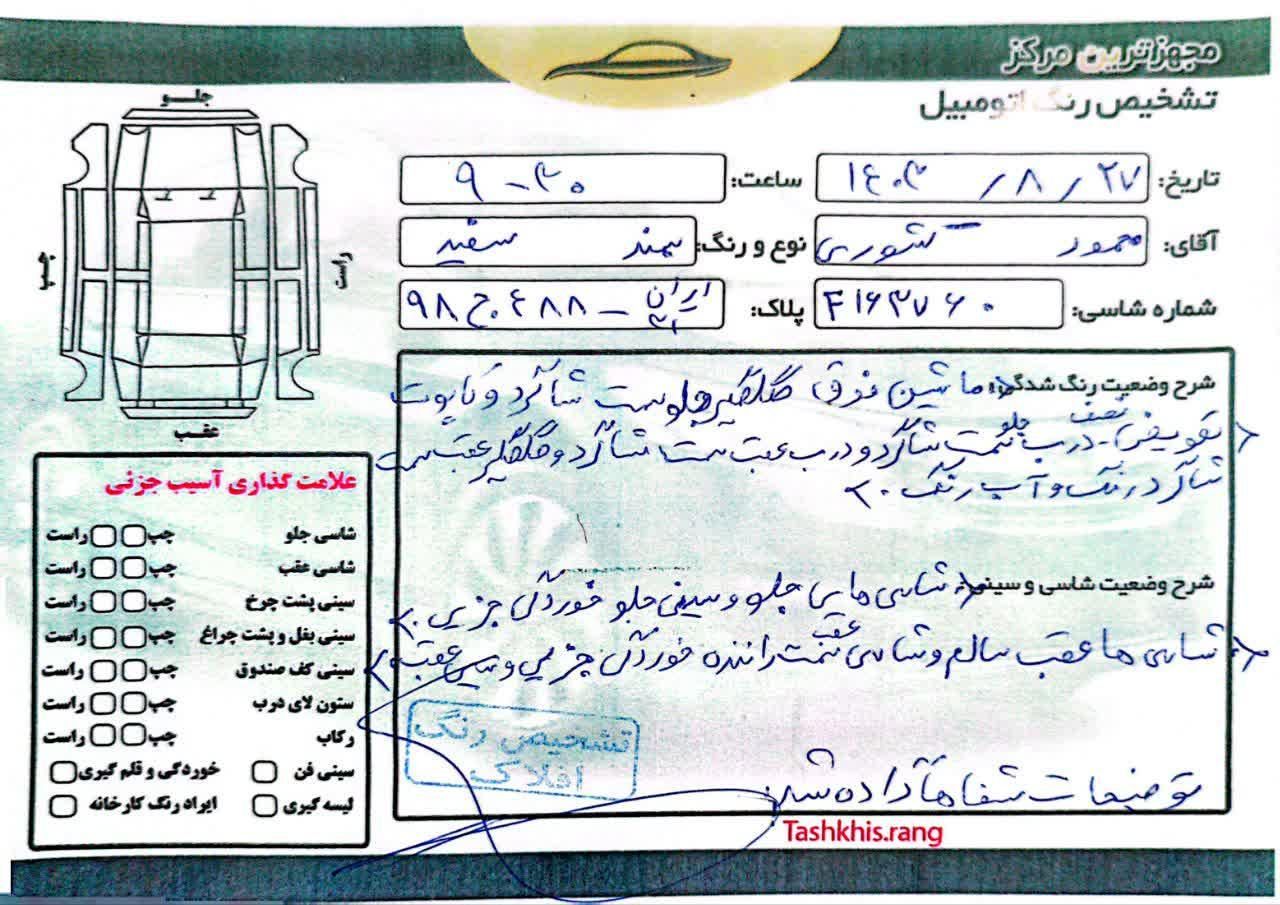 مجهزترین مرکز
تشخیص رنگ اتومبیل
تاریخ: ۱۴۰۳ / ۸ / ۲۷
ساعت: ۹-۳۰
آقای: محمود کشوری
نوع و رنگ: سمند سفید
شماره شاسی: F۱۶۳۷۶۰
پلاک: ایران ۳۱ - ۴۸۸ ج ۹۸
شرح وضعیت رنگ شدگی: ماشین فوق گلگیر جلو سمت شاگرد و کاپوت
تعویض - نصف درب جلو سمت شاگرد و درب عقب سمت شاگرد و گلگیر عقب سمت
شاگرد رنگ و آب رنگ.
شرح وضعیت شاسی و سینی: شاسی های جلو و سینی جلو خوردگی جزیی.
شاسی ها عقب سالم و شاسی عقب سمت راننده خوردگی جزیی و سینی عقب
توضیحات شفاها داده شد
تشخیص رنگ
افلاک
Tashkhis.rang
جلـو
چپ
راست
عقـب
علامت گذاری آسیب جزئی
شاسی جلو چپ راست
شاسی عقب چپ راست
سینی پشت چرخ چپ راست
سینی بغل و پشت چراغ چپ راست
سینی کف صندوق چپ راست
ستون لای درب چپ راست
رکاب چپ راست
سینی فن خوردگی و قلم گیری
لیسه گیری ایراد رنگ کارخانه